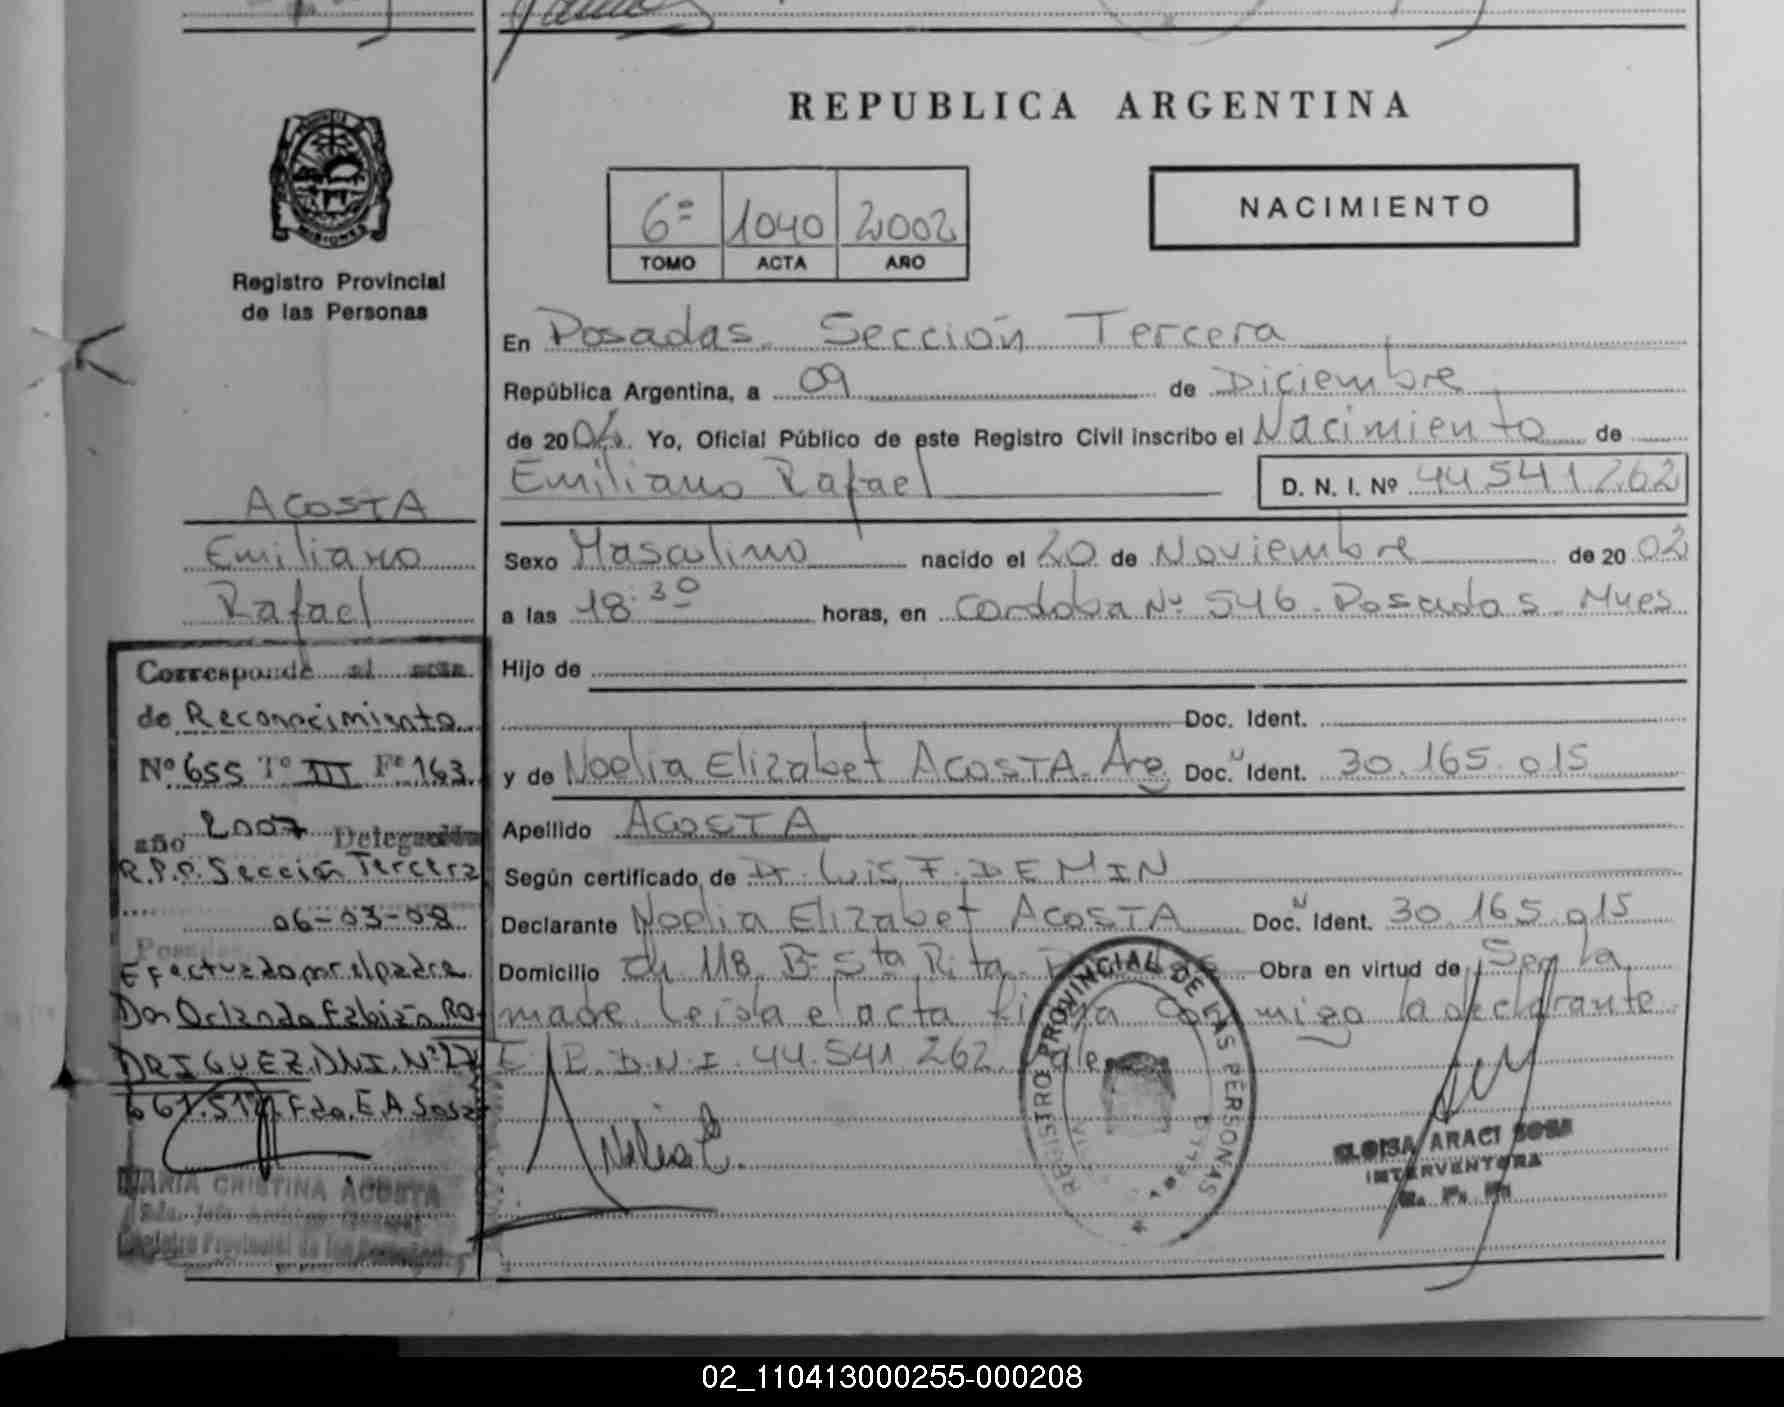 REPUBLICA ARGENTINA
PROVINCIA DE
MISIONES
Registro Provincial
de las Personas
6º 1040 2002
TOMO ACTA AÑO
NACIMIENTO
En Posadas. Sección Tercera
República Argentina, a 09 de Diciembre
de 20 Yo, Oficial Público de este Registro Civil inscribo el Nacimiento de
Emiliano Rafael D. N. I. Nº 44541262
ACOSTA
Emiliano
Rafael
Sexo Masculino nacido el 20 de Noviembre de 20 02
a las 18:30 horas, en Cordoba Nº 546. Posadas Mnes
Hijo de
Doc. Ident.
y de Noelia Elizabet ACOSTA. Arg Doc. Ident. 30.165.015
Apellido ACOSTA
Según certificado de Dr. Luis F. DEMIN
Declarante Noelia Elizabet ACOSTA Doc. Ident. 30.165.015
Domicilio Ch 118 Bº Sta Rita. Obra en virtud de Ser la
madre. Leida el acta firma conmigo la declarante
E. L. D.N.I. 44.541.262. Vale
Noelia E.
REGISTRO PROVINCIAL DE LAS PERSONAS
ELOISA ARACI SOSA
INTERVENTORA
R. P. P.
Corresponde al acta
de Reconocimiento
Nº 655 Tº III Fº 163
año 2007 Delegación
R.P.P. Sección Tercera
06-03-08
Posadas
Efectuado por el padre
Don Orlando Fabián RO-
DRIGUEZ. DNI. Nº 27
Fdo. E.A Sosa
MARIA CRISTINA ACOSTA
Registro Provincial de las Personas
02_110413000255-000208